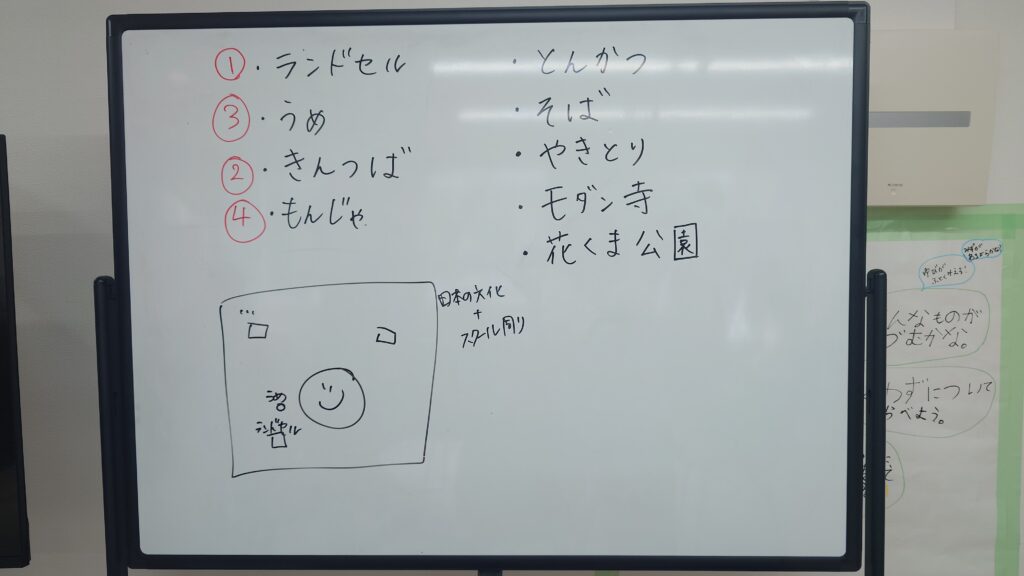 ① ・ランドセル
③ ・うめ
② ・きんつば
④ ・もんじゃ
・とんかつ
・そば
・やきとり
・モダン寺
・花くま公園
日本の文化
+
スクール周り
…
ランドセル
んなものが
づむかな。
わずについて
べよう。